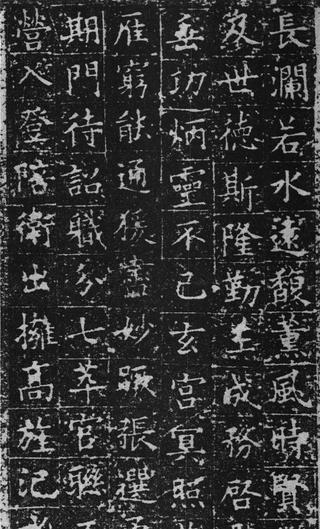 長瀾若水遠馥薰風時賢
世德斯隆勤王成務啓
垂功炳靈不已玄宮冥照
雁窮能通猨盡妙蹶張選
期門待詔職分七萃官聯
營入登陪衛出擁高旌